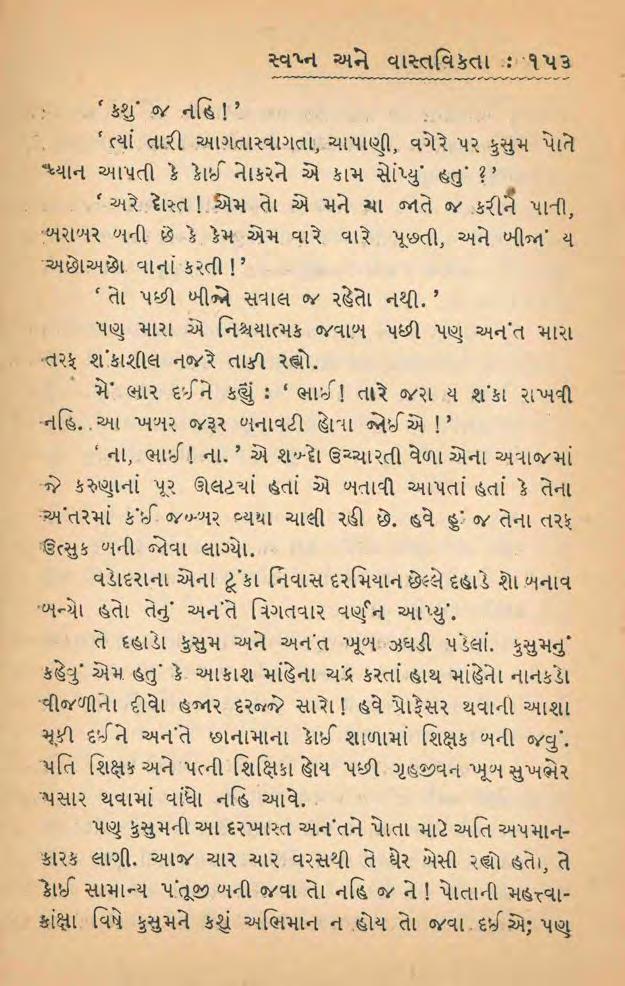 સ્વપ્ન અને વાસ્તવિકતા : ૧૫૩
‘ કશું જ નહિ ! ’
‘ ત્યાં તારી આગતાસ્વાગતા, ચાપાણી, વગેરે પર કુસુમ પોતે
ધ્યાન આપતી કે કોઈ નોકરને એ કામ સોંપ્યું હતું ? ’
‘ અરે દોસ્ત ! એમ તો એ મને ચા જાતે જ કરીને પાતી,
બરાબર બની છે કે કેમ એમ વારે વારે પૂછતી, અને બીજાં ય
અછોઅછો વાનાં કરતી ! ’
‘ તો પછી બીજો સવાલ જ રહેતો નથી. ’
પણ મારા એ નિશ્ચયાત્મક જવાબ પછી પણ અનંત મારા
તરફ શંકાશીલ નજરે તાકી રહ્યો.
મેં ભાર દઈને કહ્યું : ‘ ભાઈ ! તારે જરા ય શંકા રાખવી
નહિ. આ ખબર જરૂર બનાવટી હોવા જોઈએ ! ’
‘ ના, ભાઈ ! ના. ’ એ શબ્દો ઉચ્ચારતી વેળા એના અવાજમાં
જે કરુણાનાં પૂર ઊલટયાં હતાં એ બતાવી આપતાં હતાં કે તેના
અંતરમાં કંઈ જબ્બર વ્યથા ચાલી રહી છે. હવે હું જ તેના તરફ
ઉત્સુક બની જોવા લાગ્યો.
વડોદરાના એના ટૂંકા નિવાસ દરમિયાન છેલ્લે દહાડે શો બનાવ
બન્યો હતો તેનું અનંતે વિગતવાર વર્ણન આપ્યું.
તે દહાડો કુસુમ અને અનંત ખૂબ ઝઘડી પડેલાં. કુસુમનું
કહેવું એમ હતું કે આકાશ માંહેના ચંદ્ર કરતાં હાથ માંહેનો નાનકડો
વીજળીનો દીવો હજાર દરજ્જે સારો ! હવે પ્રોફેસર થવાની આશા
મૂકી દઈને અનંતે છાનામાના કોઈ શાળામાં શિક્ષક બની જવું.
પતિ શિક્ષક અને પત્ની શિક્ષિકા હોય પછી ગૃહજીવન ખૂબ સુખભેર
પસાર થવામાં વાંધો નહિ આવે.
પણ કુસુમની આ દરખાસ્ત અનંતને પોતા માટે અતિ અપમાન-
કારક લાગી. આજ ચાર ચાર વરસથી તે ઘેર બેસી રહ્યો હતો, તે
કોઈ સામાન્ય પંતૂજી બની જવા તો નહિ જ ને ! પોતાની મહત્ત્વા-
કાંક્ષા વિષે કુસુમને કશું અભિમાન ન હોય તો જવા દઈએ; પણ